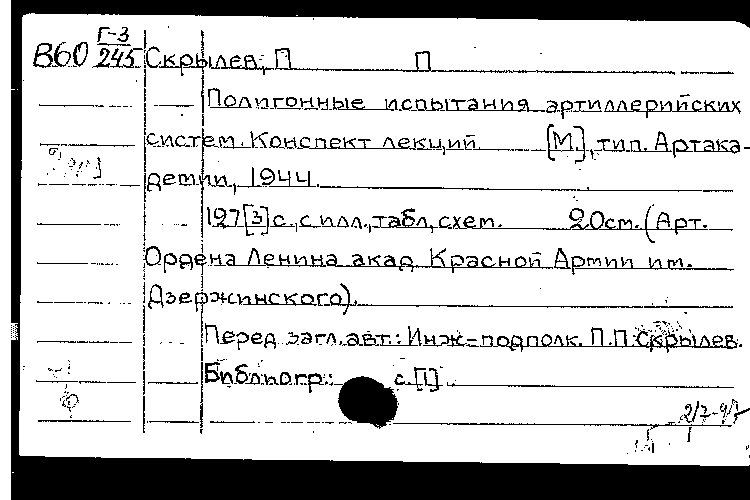 Г-3
В60 245 Скрылев, П П
Полигонные испытания артиллерийских
систем. Конспект лекций [М.], тип. Артака-
демии, 1944.
127[3]с., с илл., табл., схем. 20см. (Арт.
Ордена Ленина акад. Красной Армии им.
Дзержинского).
Перед загл. авт.: Инж-подполк. П.П. Скрылев.
Библиогр.: с.[1].
2/7-97